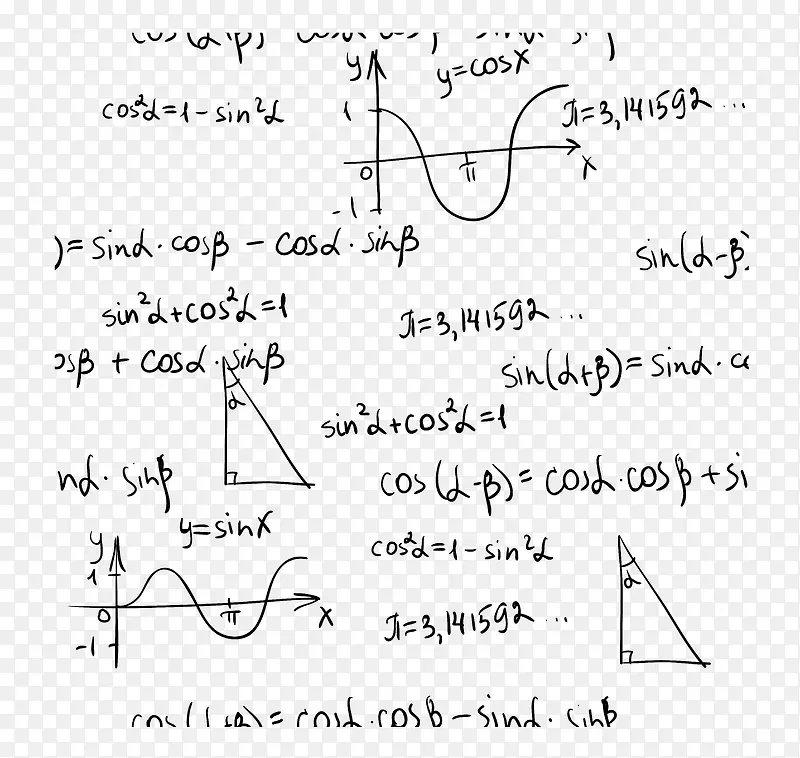 y
y=cosx
cos²α=1-sin²α
1
π=3,141592...
0
π
x
-1
)=sinα·cosβ - cosα·sinβ
sin(α-β)
sin²α+cos²α=1
π=3,141592...
osβ + cosα·sinβ
sin(α+β)=sinα·c
α
sin²α+cos²α=1
nα·sinβ
cos(α-β)=cosα·cosβ+si
y=sinx
y
cos²α=1-sin²α
1
α
0
π
x
π=3,141592...
-1
cos(α+β)=cosα·cosβ-sinα·sinβ